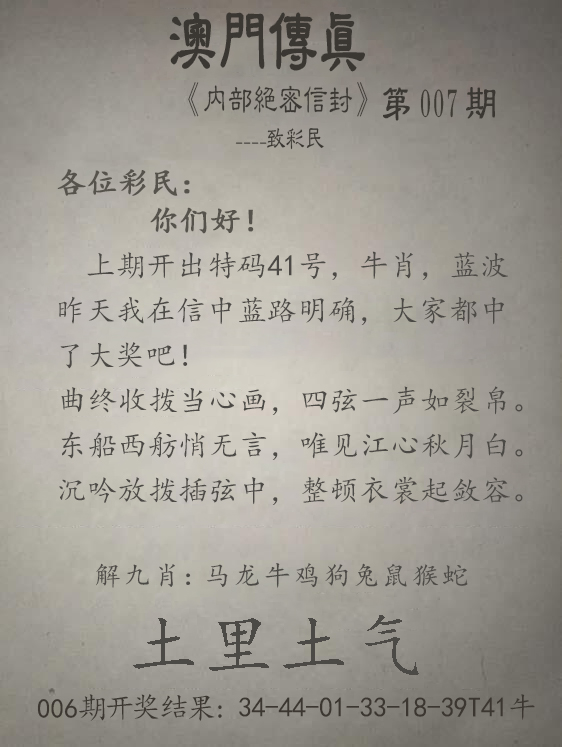 澳門傳眞
《内部絕密信封》第007期
----致彩民
各位彩民：
你们好！
上期开出特码41号，牛肖，蓝波
昨天我在信中蓝路明确，大家都中
了大奖吧！
曲终收拨当心画，四弦一声如裂帛。
东船西舫悄无言，唯见江心秋月白。
沉吟放拨插弦中，整顿衣裳起敛容。
解九肖：马龙牛鸡狗兔鼠猴蛇
土里土气
006期开奖结果：34-44-01-33-18-39T41牛